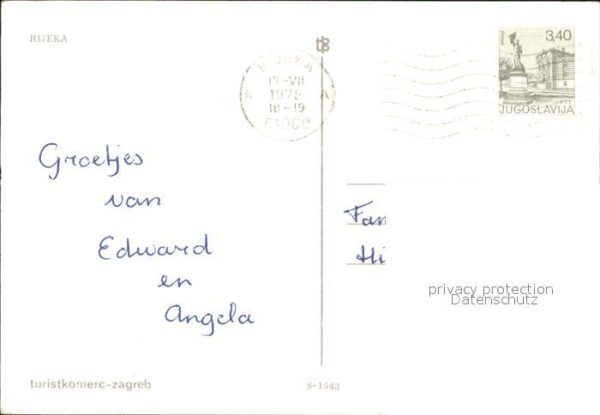 RIJEKA
RIJEKA
VII
1978
18-19
A A
51000
3,40
JUGOSLAVIJA
Groetjes
van
Edward
en
Angela
Fam
Hi
privacy protection
Datenschutz
turistkomerc-zagreb
S-1543